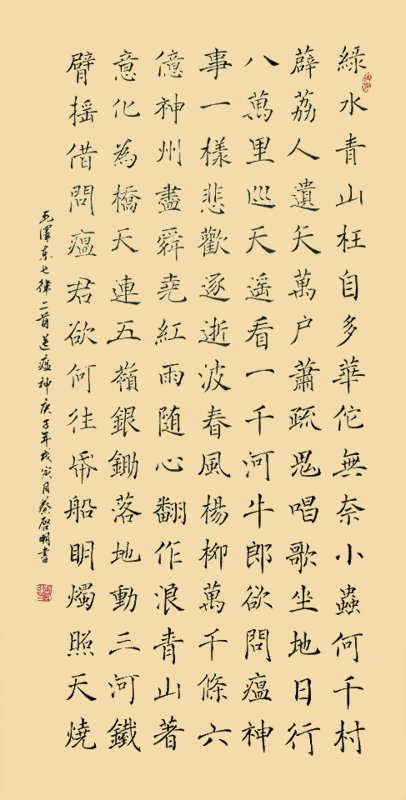 綠水青山枉自多華佗無奈小蟲何千村
薜荔人遺矢萬户蕭疏鬼唱歌坐地日行
八萬里巡天遥看一千河牛郎欲問瘟神
事一樣悲歡逐逝波春風楊柳萬千條六
億神州盡舜堯紅雨随心翻作浪青山著
意化為橋天連五嶺銀鋤落地動三河鐵
臂摇借問瘟君欲何往帋船明燭照天燒
毛澤東七律二首送瘟神庚子年戊寅月蔡啓明書